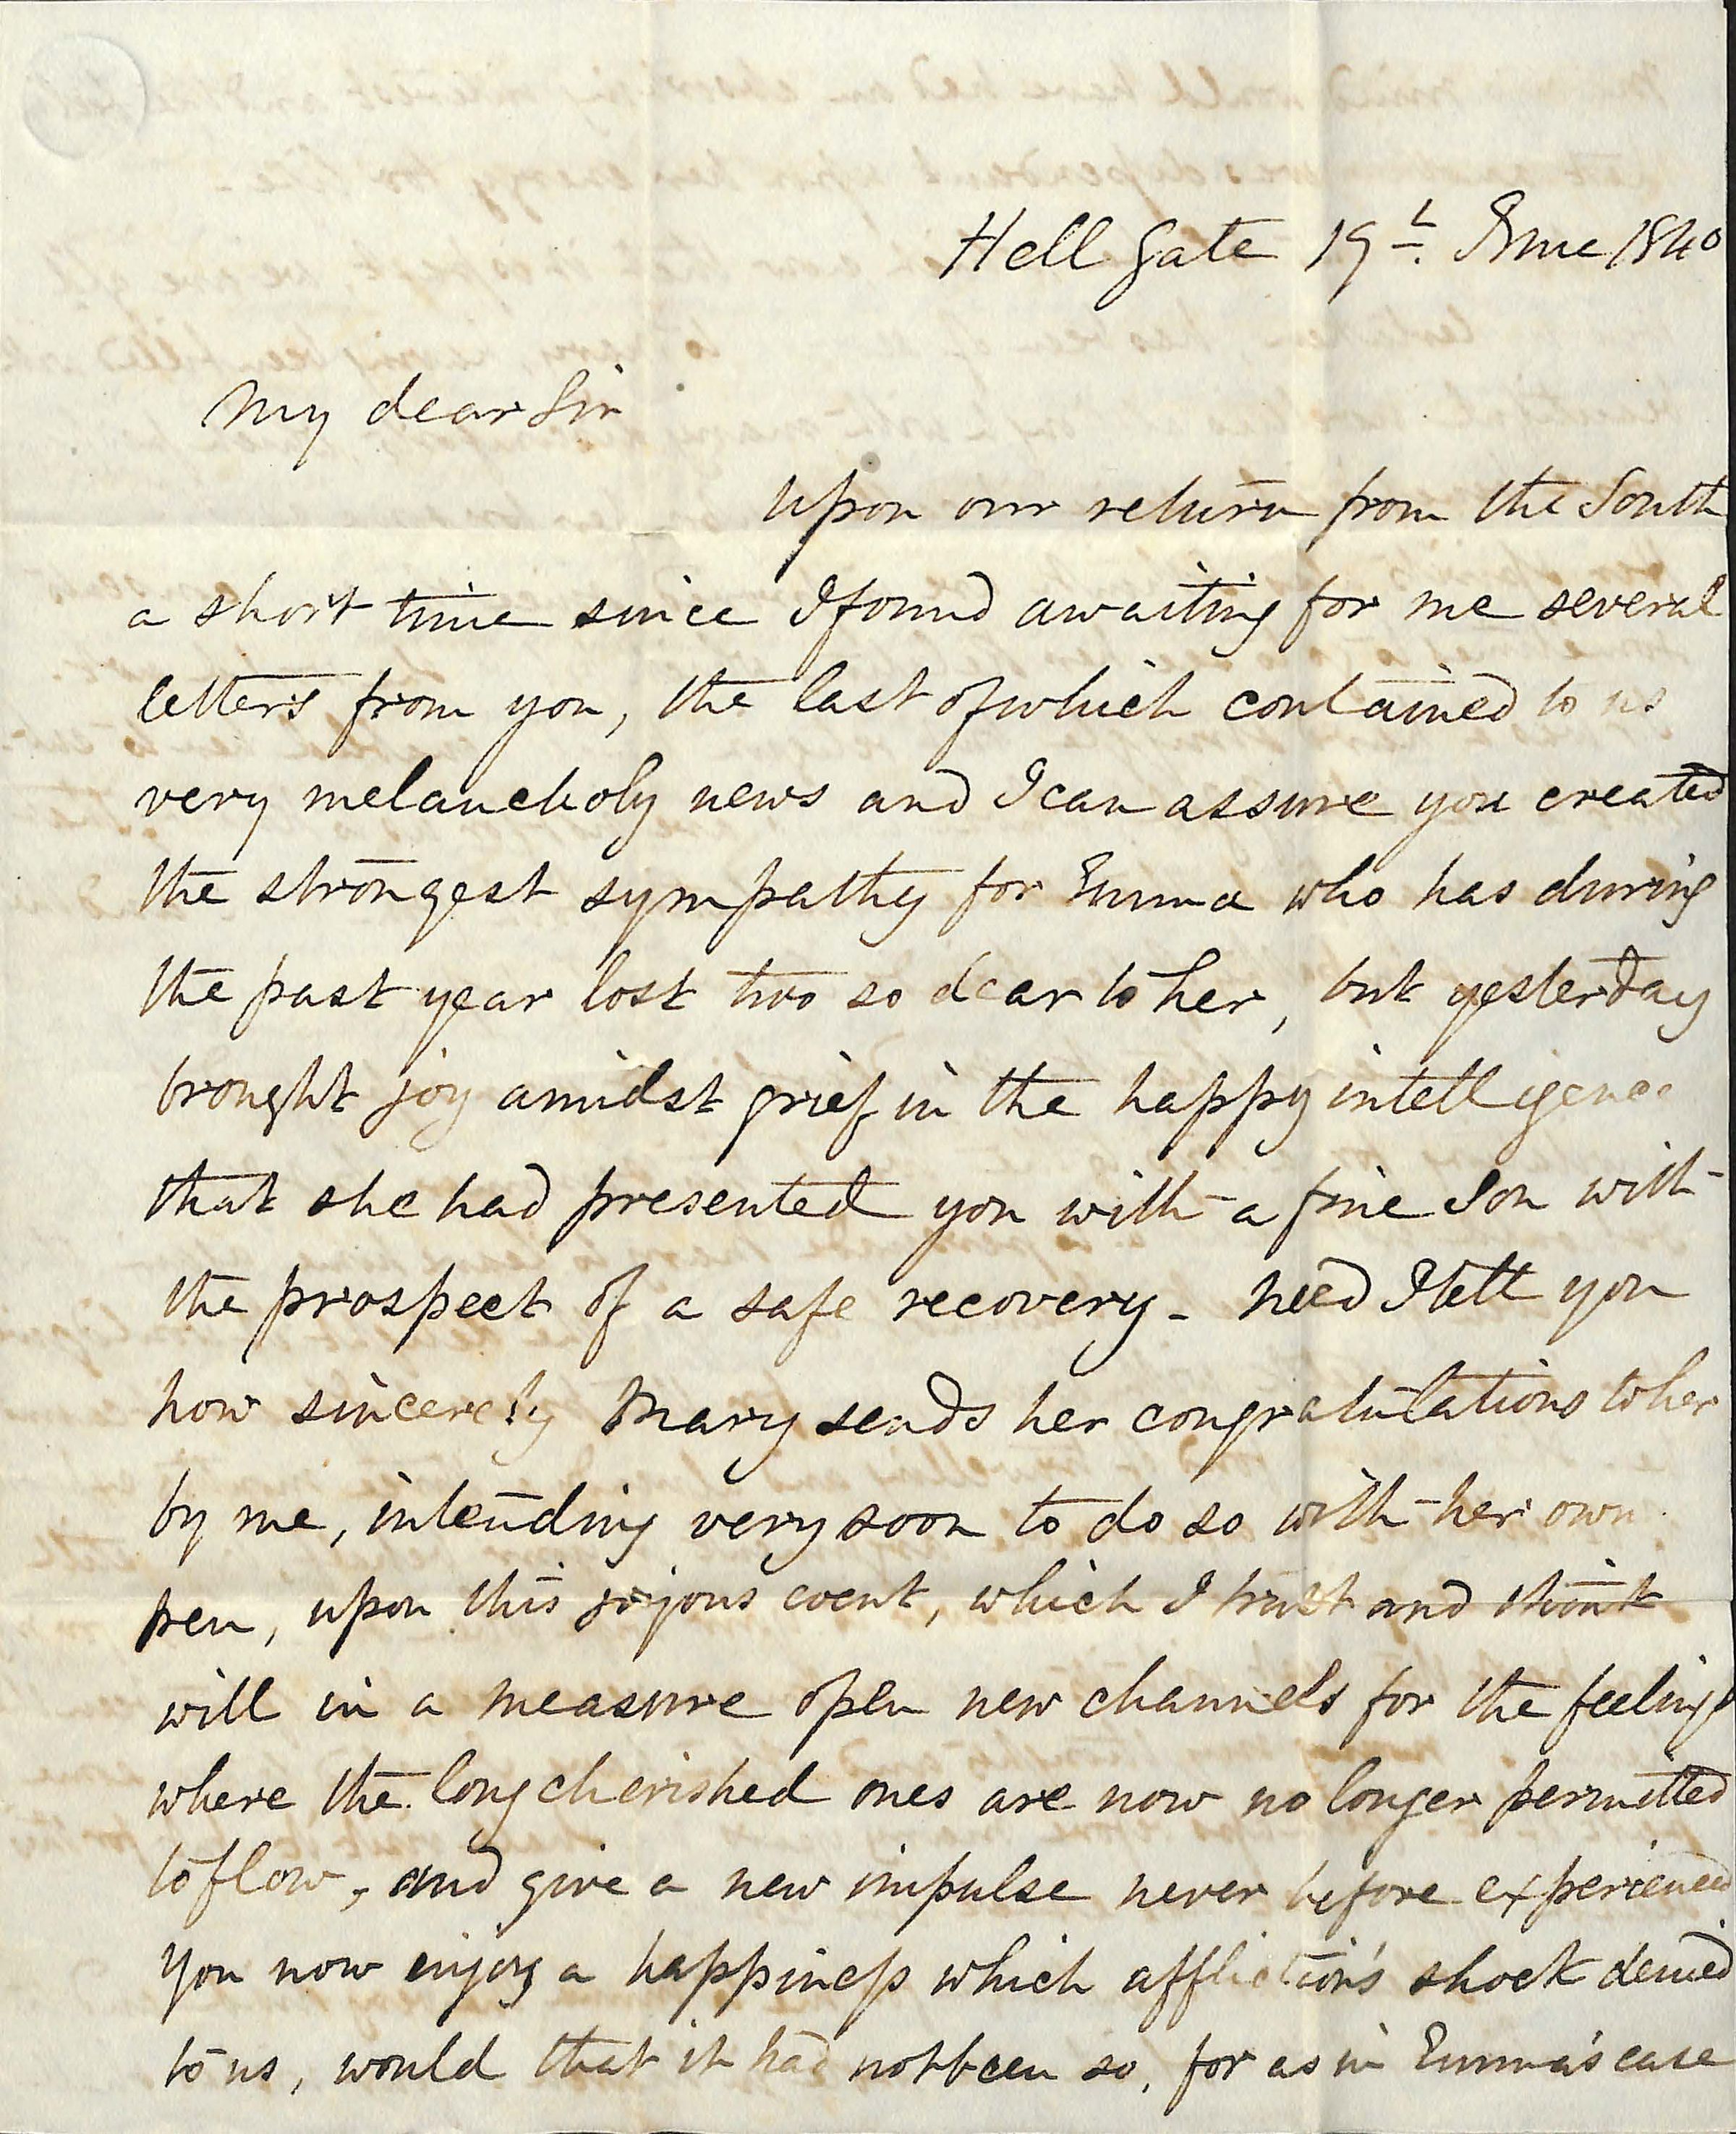 Hell Gate 19th. June 1840
My dear Sir
Upon our return from the South
a short time since I found awaiting for me several
letters from you, the last of which contained to us
very melancholy news and I can assure you created
the strongest sympathy for Emma who has during
the past year lost two so dear to her, but yesterday
brought joy amidst grief in the happy intelligence
that she had presented you with a fine Son with
the prospect of a safe recovery - need I tell you
how sincerely Mary sends her congratulations to her
by me, intending very soon to do so with her own
pen, upon this joyous event, which I trust and think
will in a measure open new channels for the feelings
where the long cherished ones are now no longer permitted
to flow, and give a new impulse never before experienced
You now enjoy a happiness which affliction's shock denied
to us, would that it had not been so, for as in Emma's case